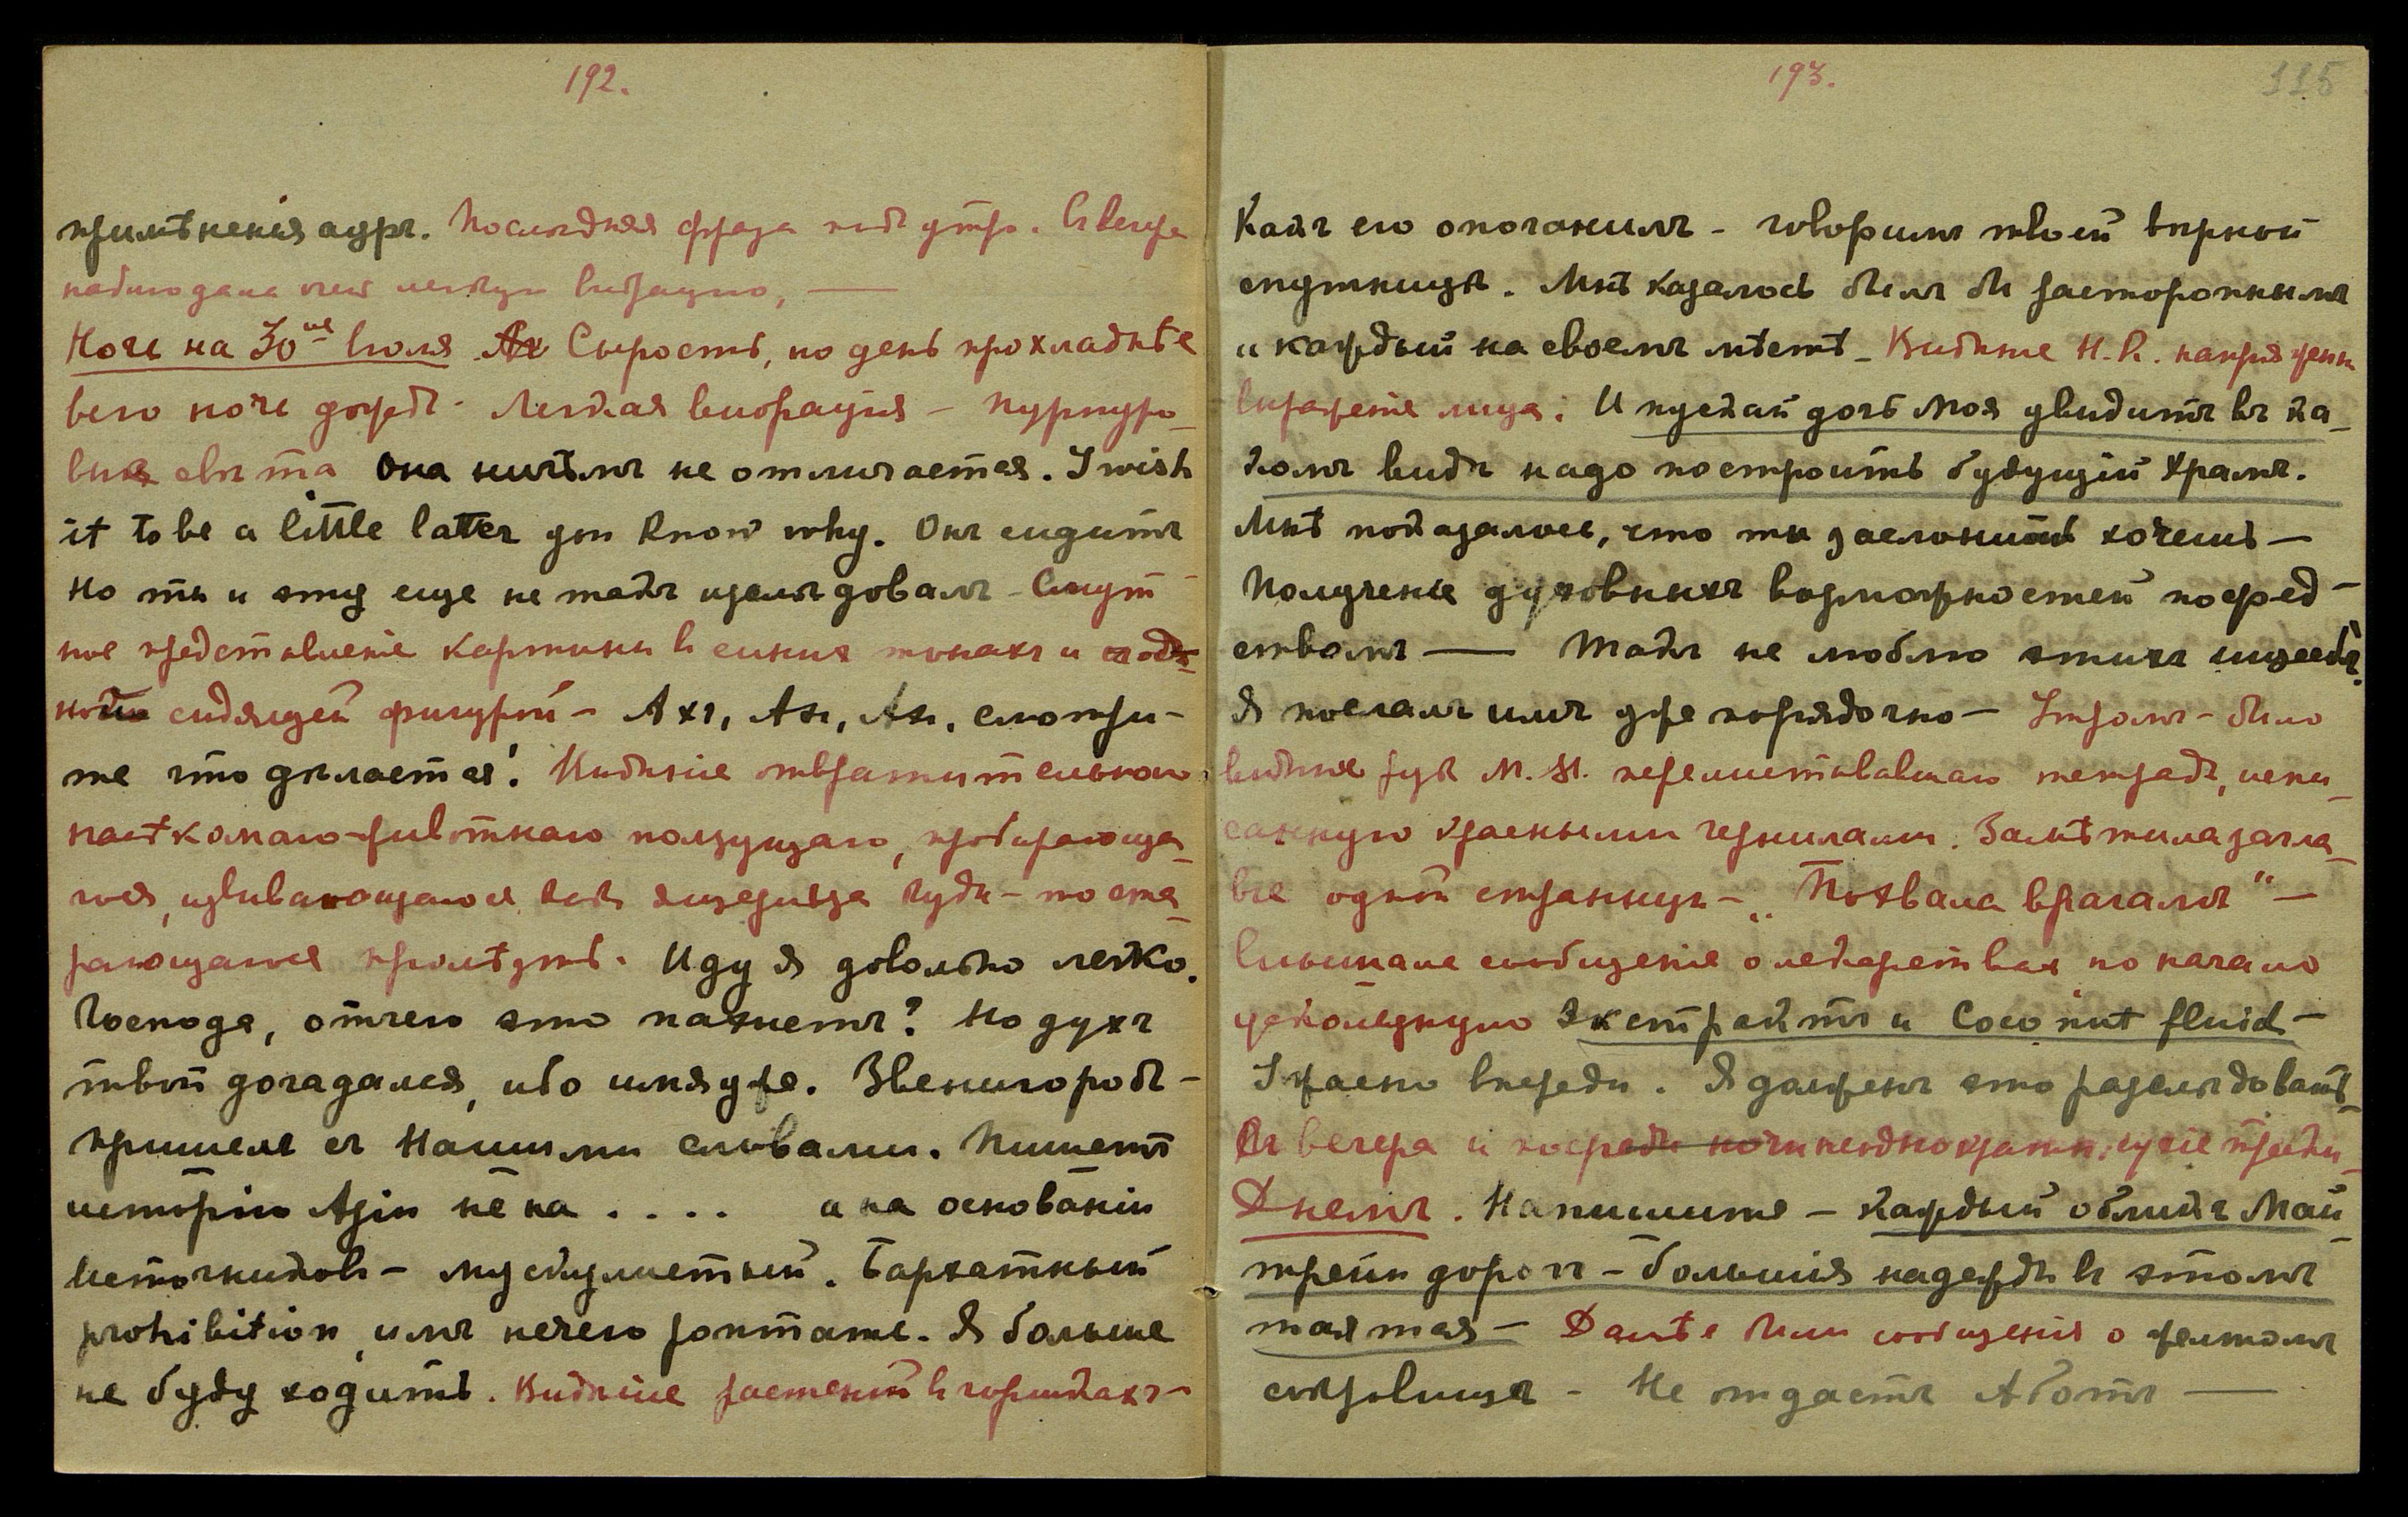 192.
примѣненія аурѣ. Послѣдняя фраза под утро. С вечера
наблюдала легкую вибрацію, —
Ночь на 30ое Іюля Сырость, но день прохладнѣе
всю ночь дождь. Легкая вибрація – пурпуро-
вые свѣта Она ничѣмъ не отличается. I wish
it to be a little latter you know why. Онъ сидитъ
но ты и эту еще не такъ изслѣдовалъ – Смут-
ное представленіе картины в синих тонахъ и
сидящей фигурой – Ахъ, Ахъ, Ахъ, смотри-
те что дѣлается! Видѣніе отвратительнаго
насѣкомаго-животнаго ползущаго, пробирающа-
гося, извивающагося как ящерица куда-то ста-
рающагося пролѣзть. Иду я довольно легко.
Господа, отчего это пахнетъ? Но духъ
твой догадался, ибо имя уже. Звенигородъ –
пришелъ съ Нашими словами. Пишетъ
исторію Азіи не на .... а на основаніи
Источниковъ – Бархатный
prohibition, имъ нечего роптать. Я больше
не буду ходить. Видѣніе растеній в горшкахъ –
193.
115
Какъ его опоганилъ – говоримъ твоей вѣрной
спутницѣ. Мнѣ казалось былъ бы расторопнымъ
и каждый на своемъ мѣстѣ – Видѣніе Н.К. напряженн.
выраженіе лица: И пускай дочь Моя увидитъ въ ка-
комъ видѣ надо построить будущій Храмъ.
Мнѣ показалось, что ты заслонить хочешь –
Полученіе духовныхъ возможностей посред-
ствомъ — Такъ не люблю этихъ
Я послалъ имъ уже порядочно – Утромъ – было
видѣніе рукъ М.М. перелистывавшаго тетрадь, испи-
санную красными чернилами. Замѣтила загла-
віе одной страницы – „Похвала врагамъ" –
Слышала сообщеніе о лекарствах но начало
ускользнуло Экстрактъ и Coco nut fluid –
Ужасно впереди. Я долженъ это разслѣдовать –
Съ вечера и посреди ночи неоднократн.
Днемъ. Напишите – каждый обликъ Май-
трейи дорогъ – большія надежды въ этомъ
таятся – Далѣе были сообщенія о желтомъ
сокровищѣ – Не отдастъ Аботъ —